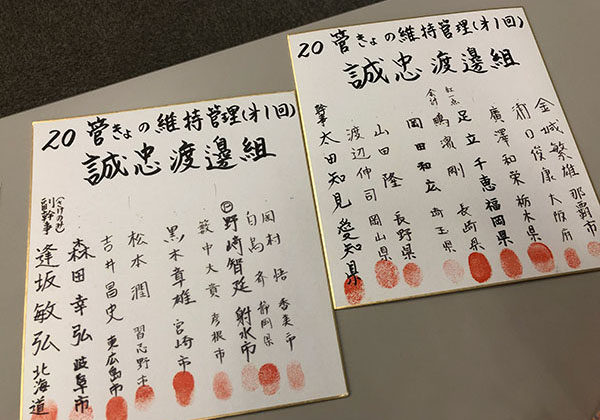 20 管きょの維持管理(才1回)
誠忠渡邊組
金城繁雄 那覇市
浦口俊康 大阪府
廣澤和栄 栃木県
足立千恵 福岡県
紅一点
会計 嶋濱剛 長崎県
岡田和広 埼玉県
山田隆 長野県
渡辺伸司 岡山県
幹事 太田知見 愛知県
20 管きょの維持管理(才1回)
誠忠渡邊組
岡村悟
白鳥 静岡県
野崎智延 射水市
藪中大貴 彦根市
黒木章雄 宮崎市
松木潤 習志野市
吉井昌史 東広島市
森田幸弘 岐阜市
副幹事 逢坂敏弘 北海道